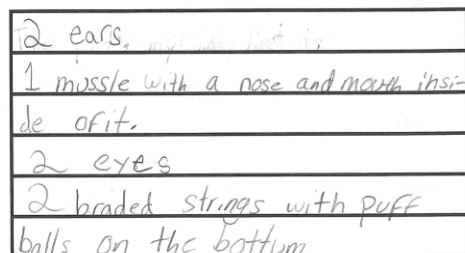 2 ears.
1 mussle with a nose and mouth insi-
de of it.
2 eyes
2 braded strings with puff
balls on the bottum